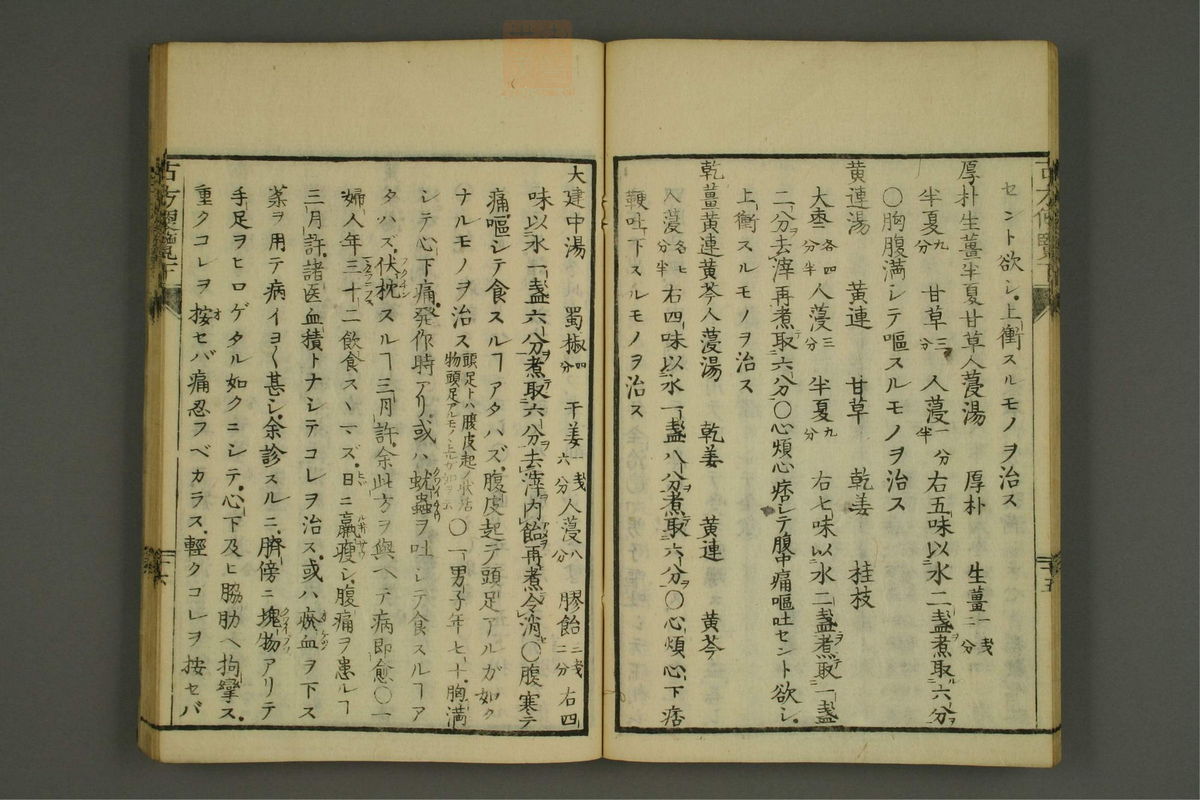 セント欲シ上衝スルモノヲ治ス
厚朴生薑半夏甘草人蓡湯 厚朴 生薑一戔二分
半夏九分 甘草三分 人蓡一分半 右五味以水二盞煮取六分
〇胸腹満シテ嘔スルモノヲ治ス
黄連湯 黄連 甘草 乾姜 桂枝
大棗各四分半 人蓡三分 半夏九分 右七味以水二盞煮取一盞
二分去滓再煮取六分〇心煩心痞シテ腹中痛嘔吐セント欲シ
上衝スルモノヲ治ス
乾薑黄連黄芩人蓡湯 乾姜 黄連 黄芩
人蓡各七分半 右四味以水一盞八分煮取六分〇心煩心下痞
鞕吐下スルモノヲ治ス
古方便覧下
大建中湯 蜀椒四分 干姜一戔六分 人蓡八分 膠飴二戔二分 右四
味以水一盞六分煮取六分去滓内飴再煮令消〇腹寒テ
痛嘔シテ食スルヿアタハズ腹皮起テ頭足アルガ如ク
ナルモノヲ治ス 〇一男子年七十胸満
シテ心下痛発作時アリ或ハ蚘蟲ヲ吐シテ食スルヿア
タハズ伏枕スルヿ三月許余此方ヲ與ヘテ病即愈〇一
婦人年三十二飲食スヽマズ日ニ羸痩シ腹痛ヲ患ルヿ
三月許諸医血積トナシテコレヲ治ス或ハ瘀血ヲ下ス
薬ヲ用テ病イヨ〱甚シ余診スルニ臍傍ニ塊物アリテ
手足ヲヒロゲタル如クニシテ心下及ヒ脇肋ヘ拘攣ス
重クコレヲ按セバ痛忍フベカラス輕クコレヲ按セバ
古方便覧下